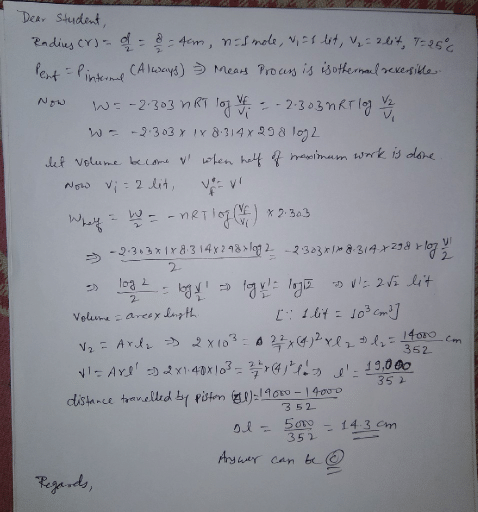 Dear Student,
Radius (r) = d/2 = 8/2 = 4cm, n = 1 mole, V₁ = 1 lit, V₂ = 2 lit, T = 25°C
Pext = Pinternal (Always) ⇒ Means Process is isothermal reversible
Now W = -2.303 nRT log Vf/Vi = -2.303 nRT log V₂/V₁
W = -2.303 x 1 x 8.314 x 298 log 2
let volume become V' when half of maximum work is done
Now Vi = 2 lit, Vf = V'
Whalf = W/2 = -nRT log (Vf/Vi) x 2.303
⇒ -2.303 x 1 x 8.314 x 298 x log 2 / 2 = -2.303 x 1 x 8.314 x 298 x log V'/2
⇒ log 2 / 2 = log V'/2 ⇒ log V'/2 = log √2 ⇒ V' = 2√2 lit
Volume = area x length [∵ 1 lit = 10³ cm³]
V₂ = A x l₂ ⇒ 2 x 10³ = 22/7 x (4)² x l₂ ⇒ l₂ = 14000/352 cm
V' = A x l' ⇒ 2 x 1.40 x 10³ = 22/7 x (4)² l' ⇒ l' = 19,000/352
distance travelled by piston (Δl) = 19000 - 14000 / 352
Δl = 5000/352 = 14.3 cm
Answer can be (c)
Regards,